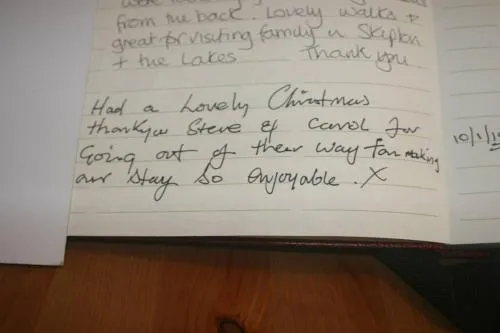 from the back. Lovely walks +
great for visiting family in Skipton
+ the Lakes Thank you.
Had a Lovely Christmas
thankyou Steve & Carol for
Going out of their way for making
our stay so enjoyable. X
10/1/1